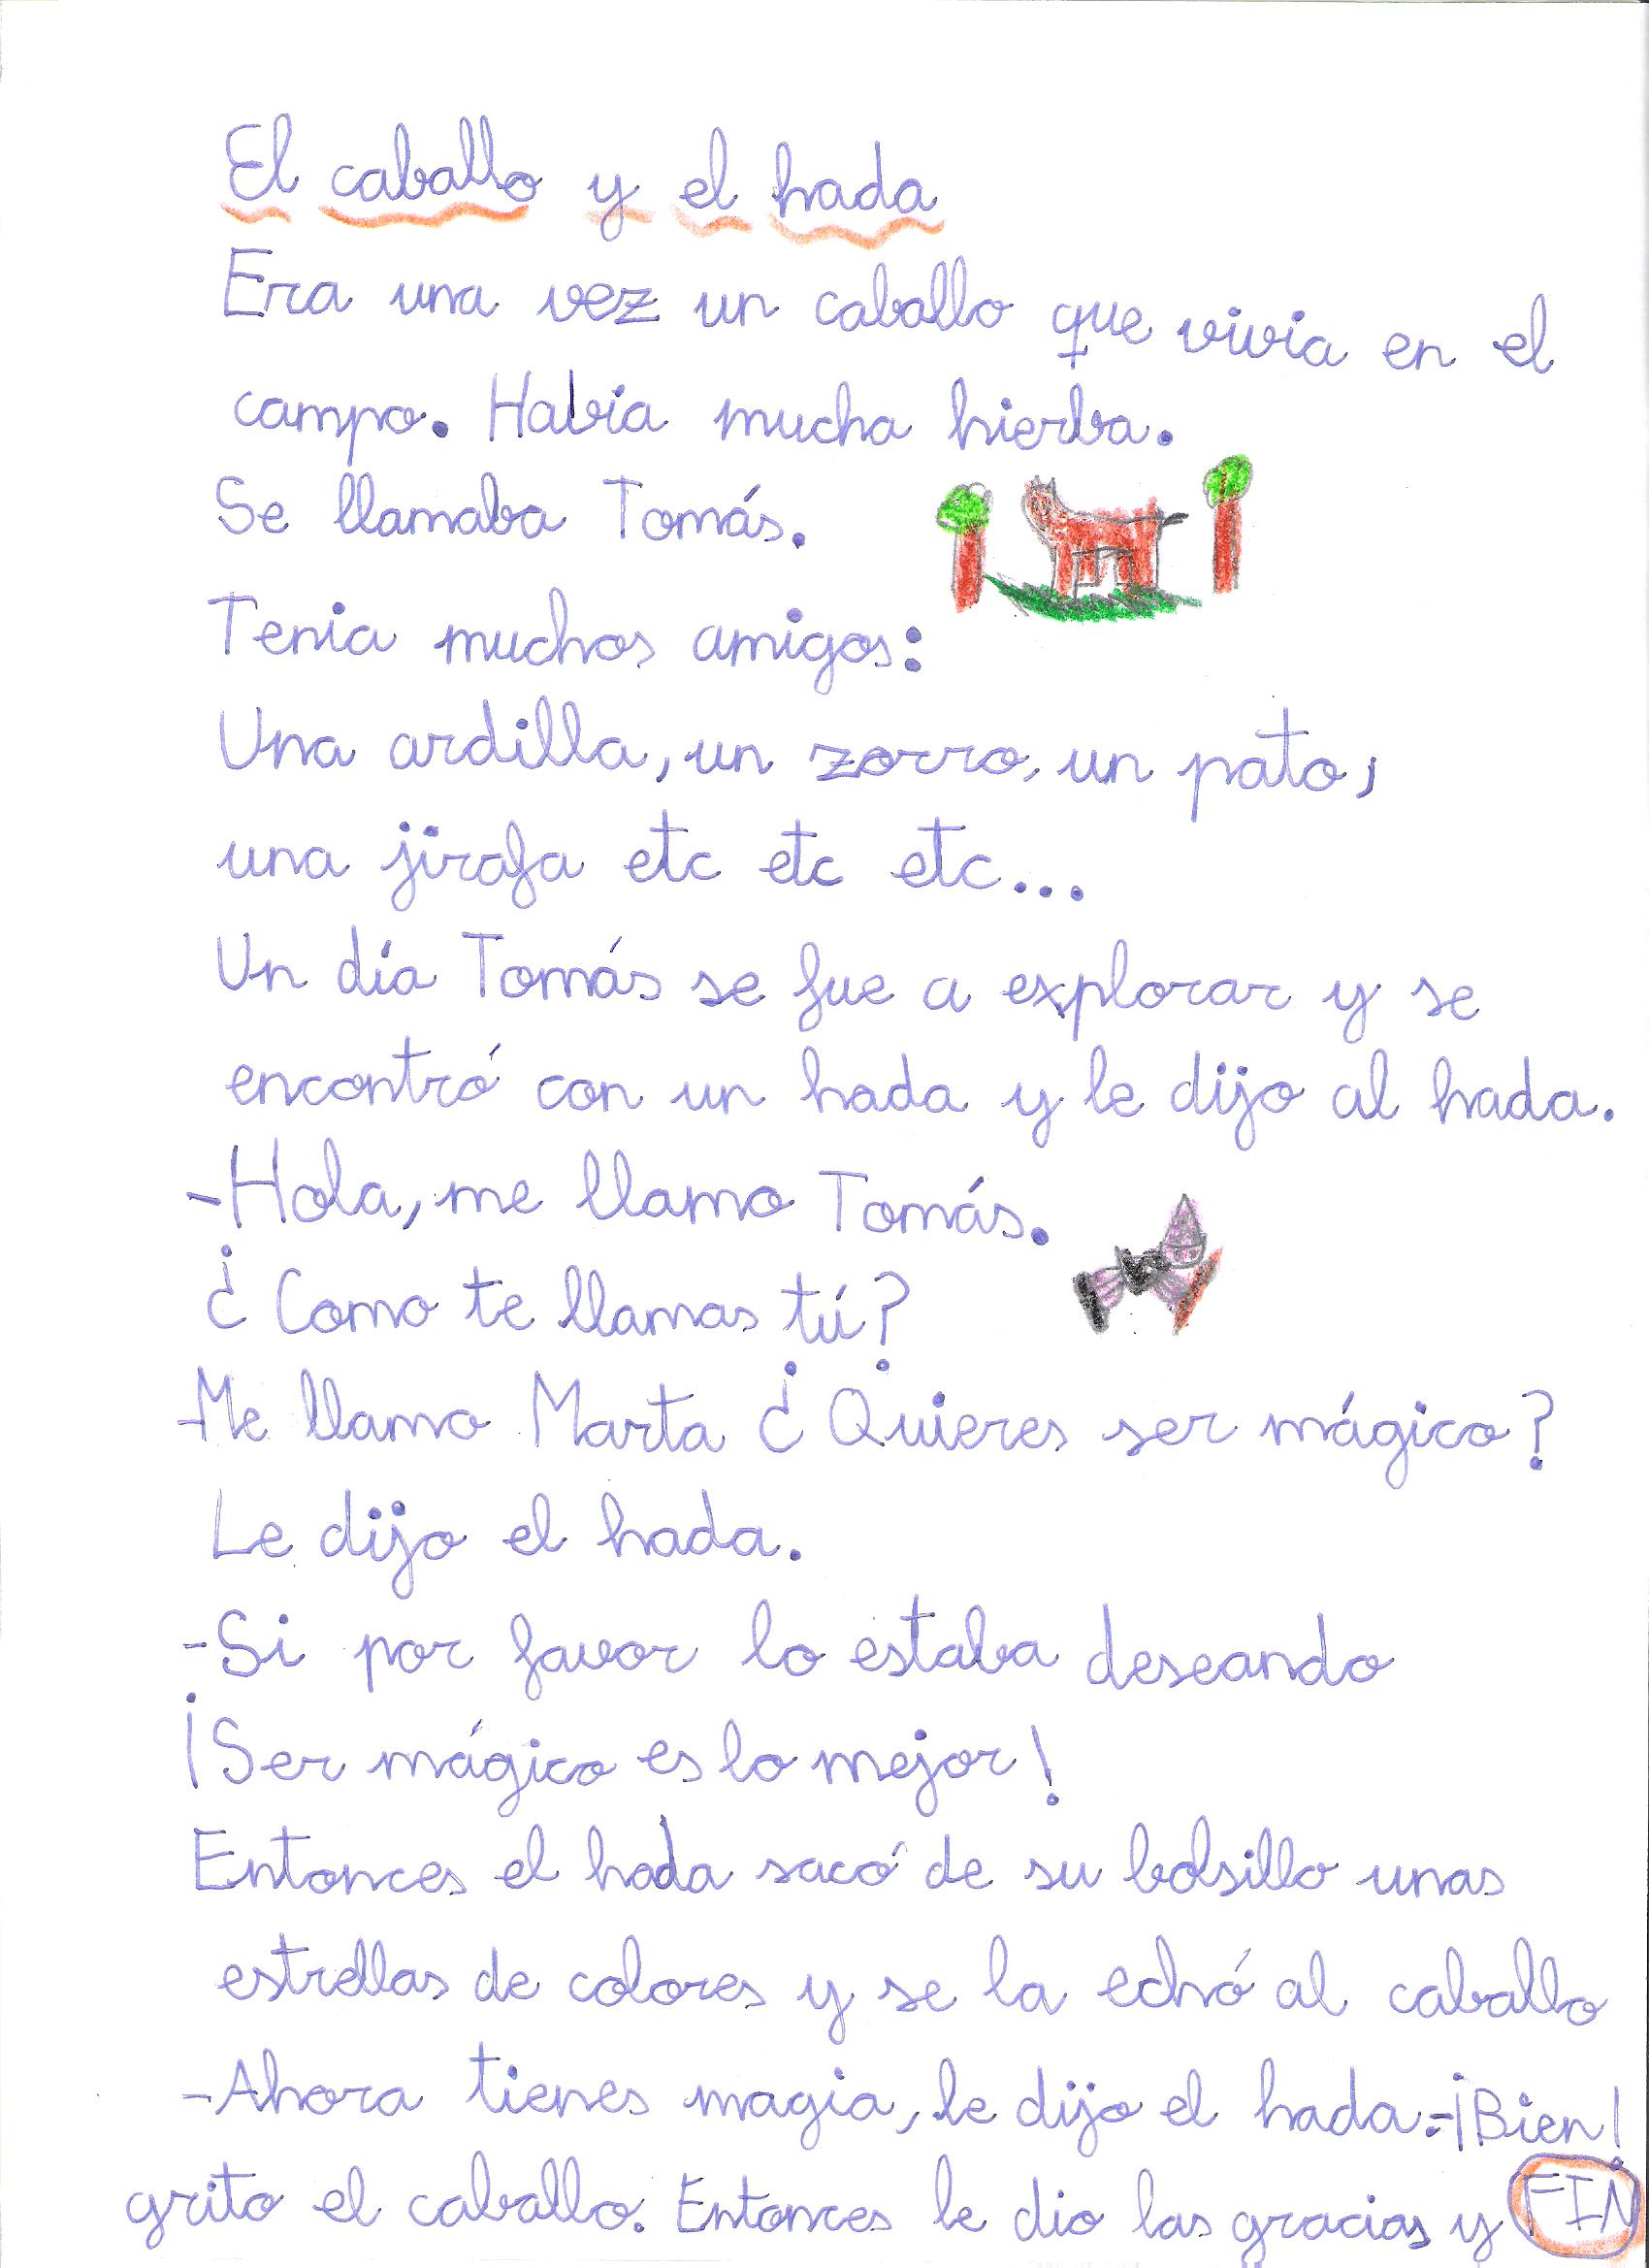 El caballo y el hada
Era una vez un caballo que vivia en el
campo. Habia mucha hierba.
Se llamaba Tomás.
Tenia muchos amigos:
Una ardilla, un zorro, un pato,
una jirafa etc etc etc...
Un día Tomás se fue a explorar y se
encontró con un hada y le dijo al hada.
-Hola, me llamo Tomás.
¿Como te llamas tú?
-Me llamo Marta ¿Quieres ser mágico?
Le dijo el hada.
-Si por favor lo estaba deseando
¡Ser mágico es lo mejor!
Entonces el hada sacó de su bolsillo unas
estrellas de colores y se la echó al caballo
-Ahora tienes magia, le dijo el hada.-¡Bien!
grito el caballo. Entonces le dio las gracias y FIN